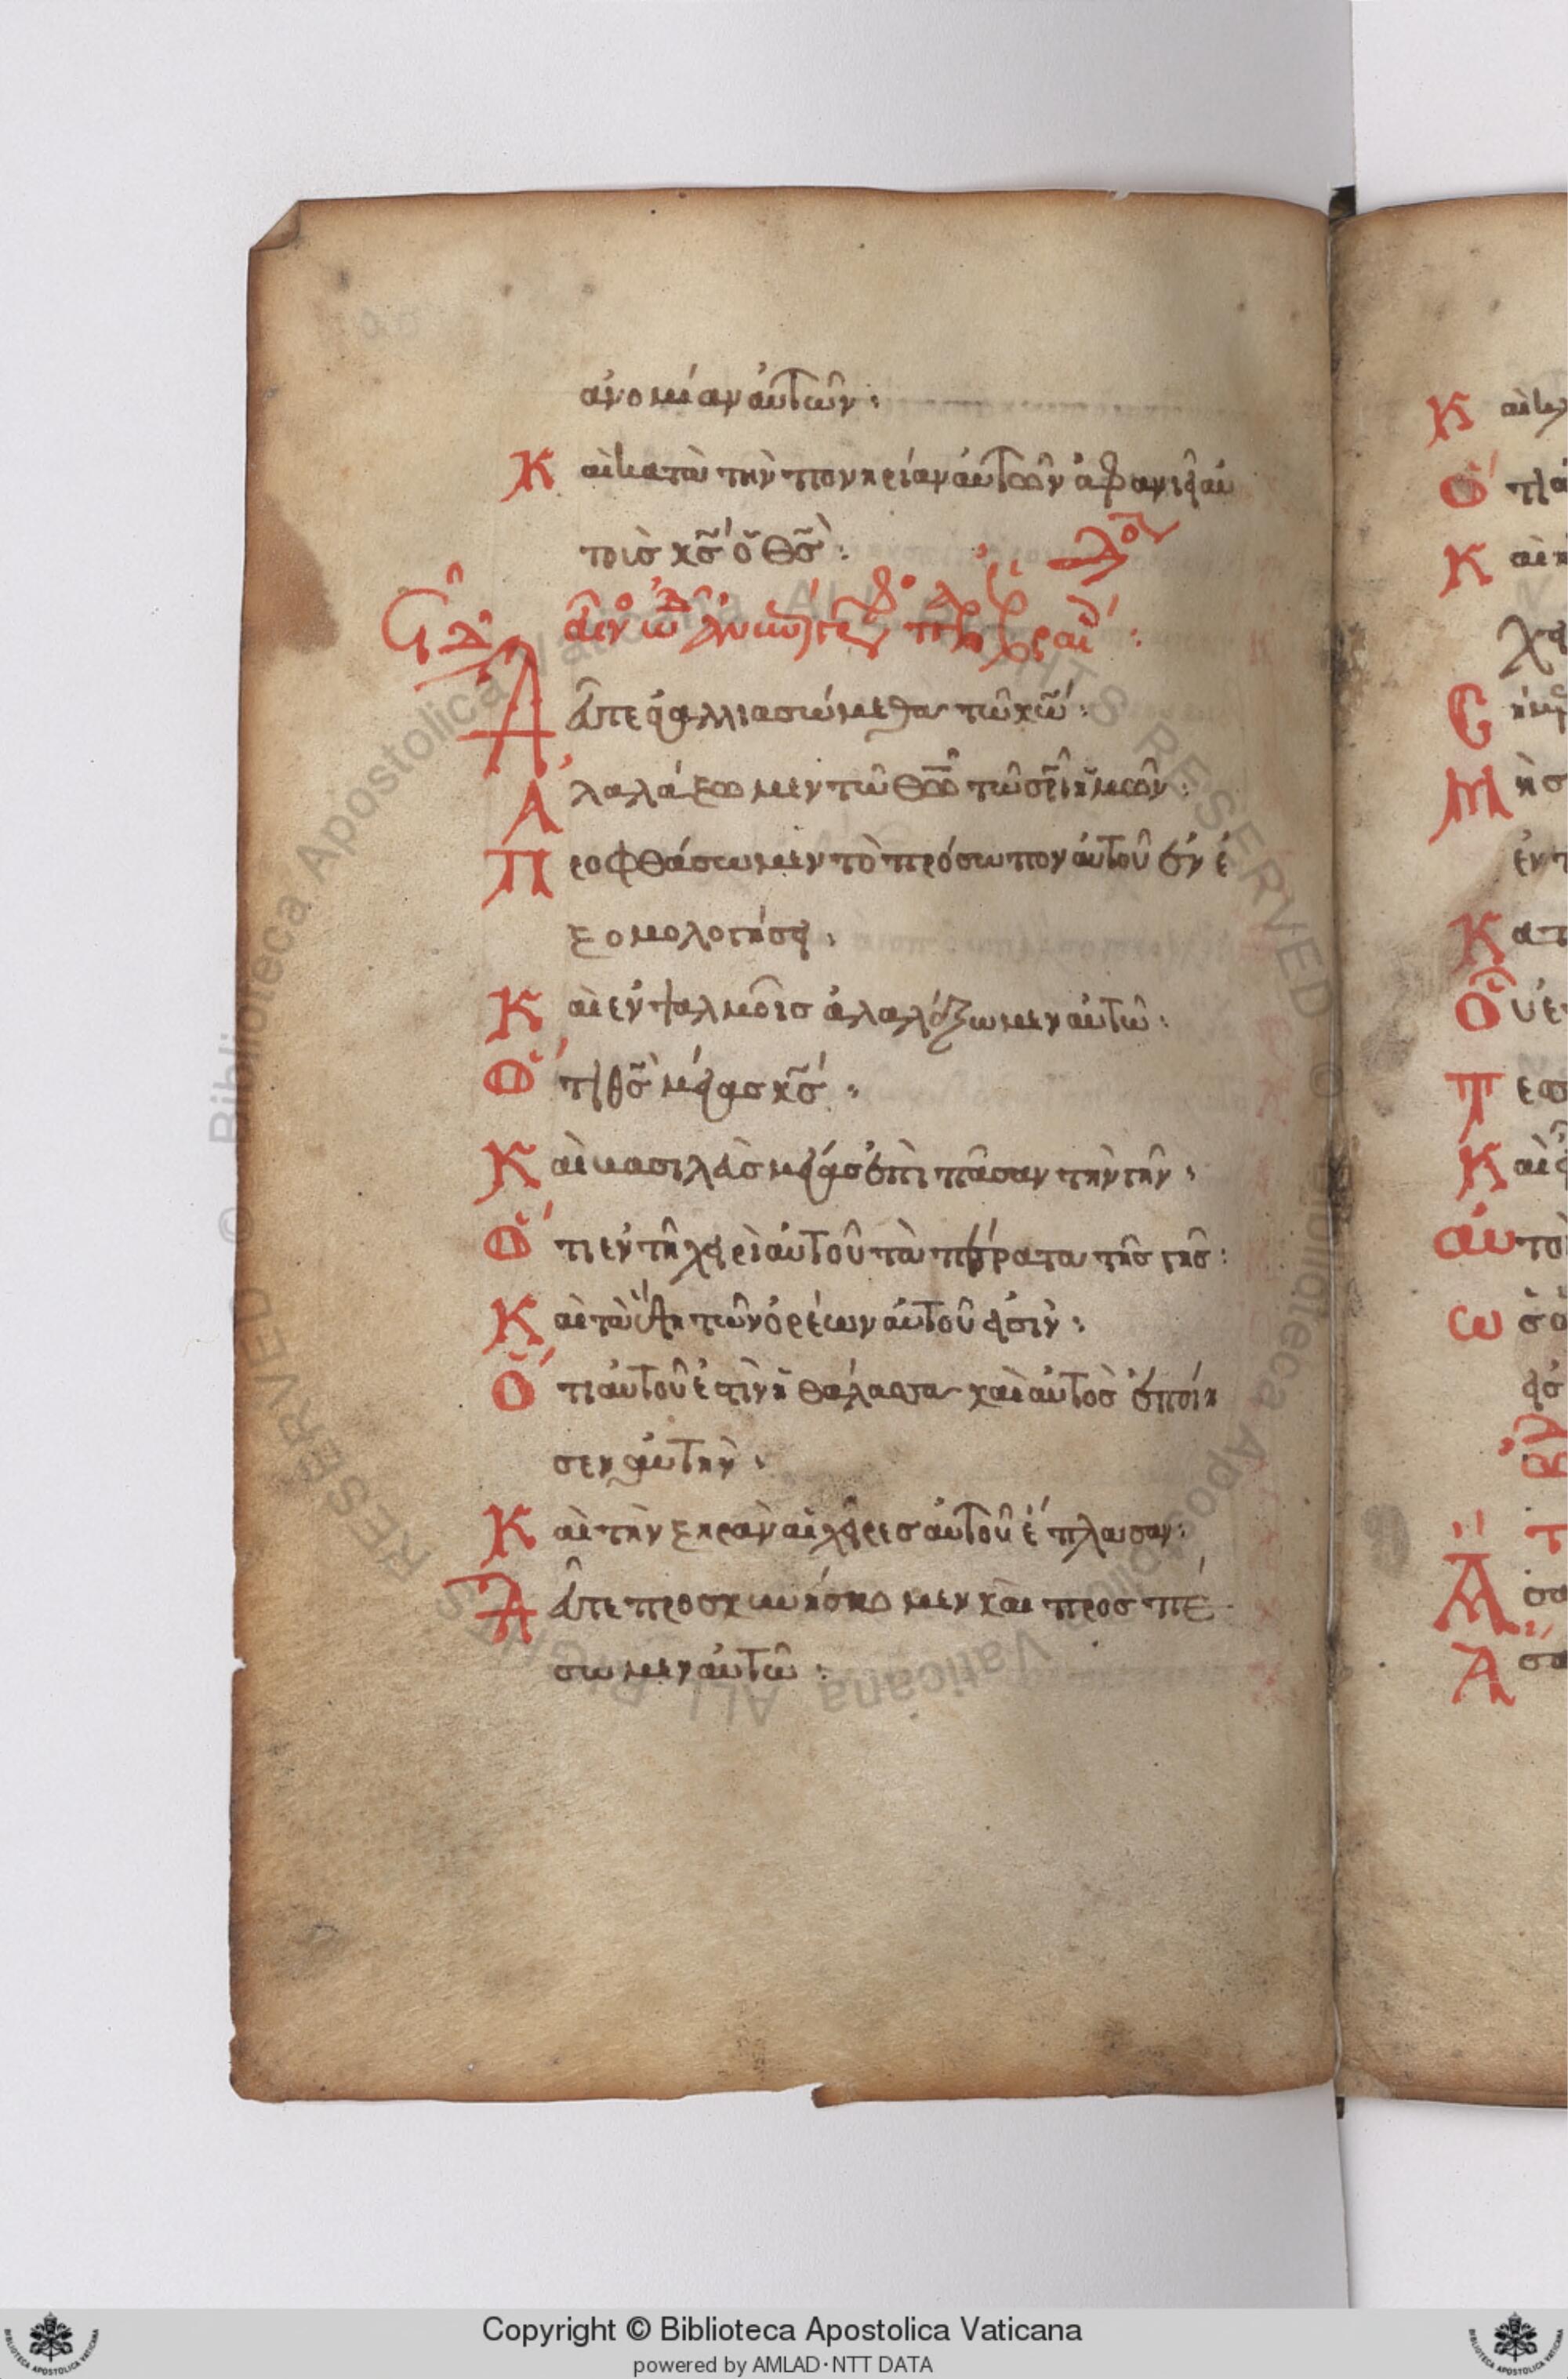 ἀνομίαν αὐτῶν:
Καὶ κατὰ τὴν πονηρίαν αὐτῶν ἀφανιεῖ αὐ
τοὺς κς ὁ θς:
αἶνος ὠδῆς
Δεῦτε ἀγαλλιασώμεθα τῶ κω:
Ἀλαλάξωμεν τῶ θω τῶ σρι ἡμῶν:
Προφθάσωμεν τὸ πρόσωπον αὐτοῦ ἐν ἐ
ξομολογήσει:
Καὶ ἐν ψαλμοῖς ἀλαλάξωμεν αὐτῶ:
Ὅτι θς μέγας κς:
Καὶ βασιλεὺς μέγας ἐπὶ πᾶσαν τὴν γῆν:
Ὅτι ἐν τῆ χειρὶ αὐτοῦ τὰ πέρατα τῆς γῆς:
Καὶ τὰ ὕψη τῶν ὀρέων αὐτοῦ εἰσιν:
Ὅτι αὐτοῦ ἐστιν ἡ θάλασσα καὶ αὐτὸς ἐποίη
σεν αὐτήν:
Καὶ τὴν ξηρὰν αἱ χεῖρες αὐτοῦ ἔπλασαν:
Δεῦτε προσκυνήσωμεν καὶ προσπέ
σωμεν αὐτῶ:
Copyright © Biblioteca Apostolica Vaticana
powered by AMLAD·NTT DATA